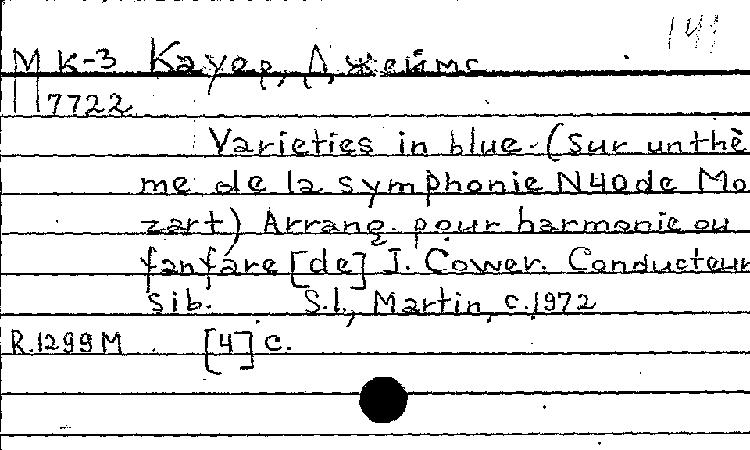 141
М К-3 Кауэр, Джеймс
7722
Varieties in blue. (Sur un thè
me de la symphonie N40 de Mo
zart) Arrang. pour harmonie ou
fanfare [de] J. Cower. Conducteur
sib. S.l., Martin, c.1972
R.1299M [4] c.